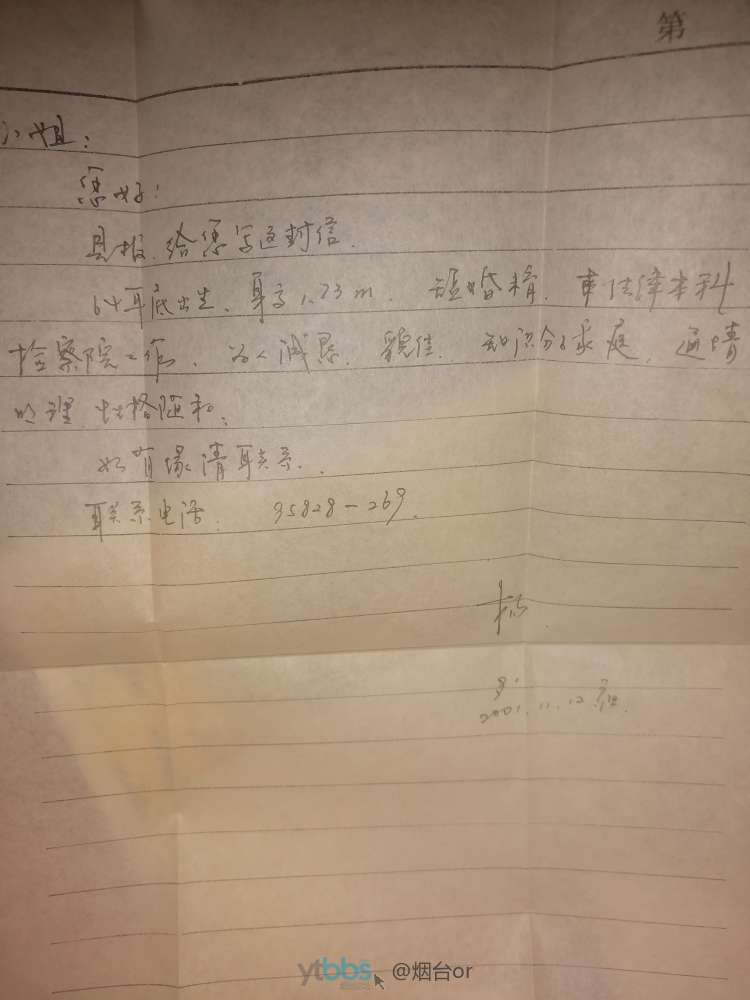 第
小姐：
您好！
见报，给您写这封信。
64年底出生、身高1.73m、短婚褙、法律本科
检察院工作、为人诚恳、貌佳、知识分子家庭、通情
明理、性格随和。
如有缘请联系。
联系电话： 95828-269
2001.11.12
ytbbs @烟台or